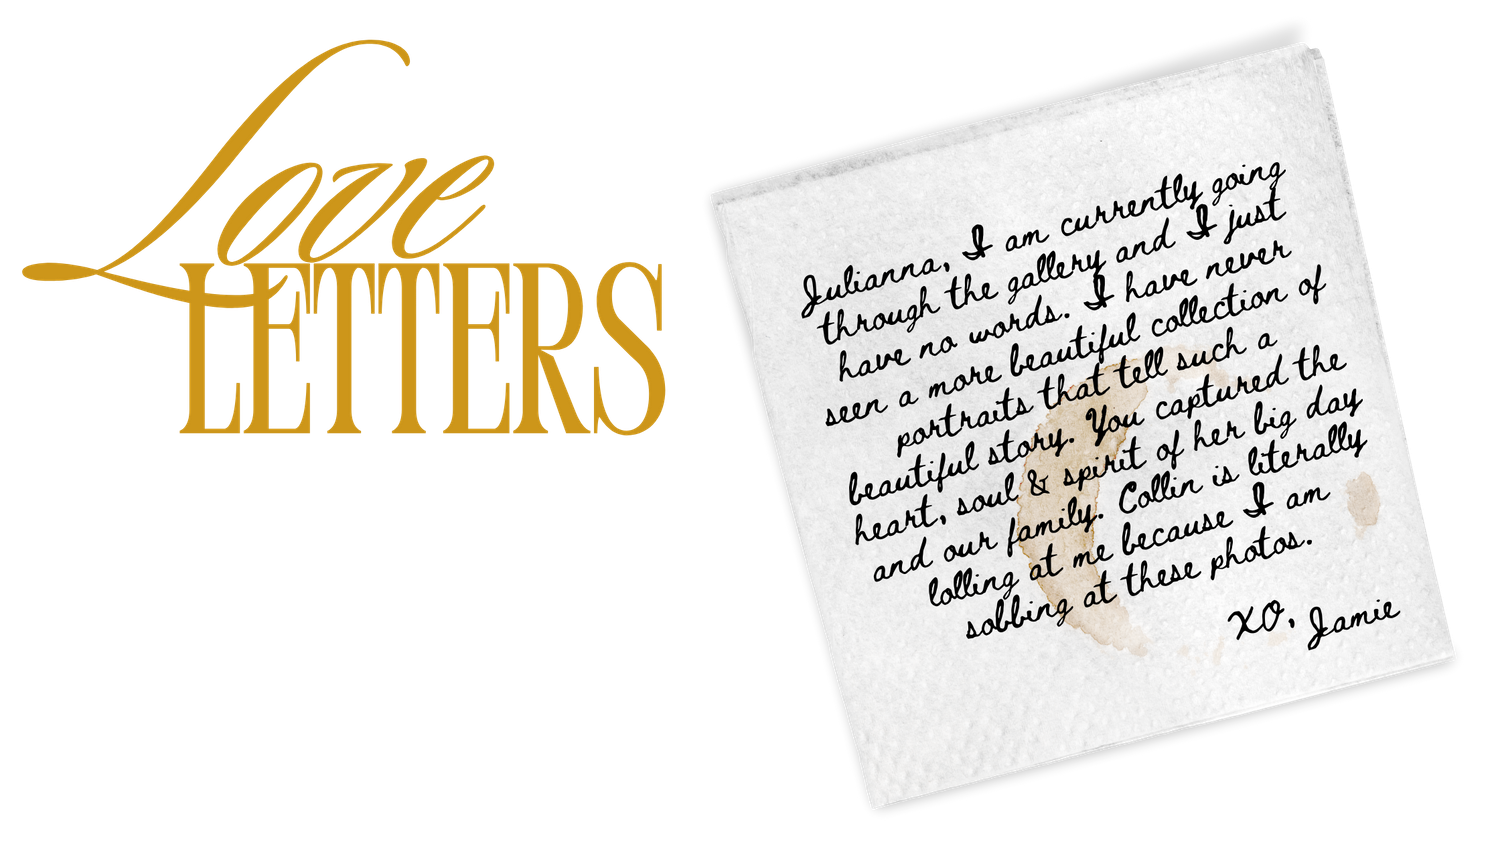 Love
LETTERS
Julianna, I am currently going
through the gallery and I just
have no words. I have never
seen a more beautiful collection of
portraits that tell such a
beautiful story. You captured the
heart, soul & spirit of her big day
and our family. Collin is literally
lolling at me because I am
sobbing at these photos.
XO, Jamie